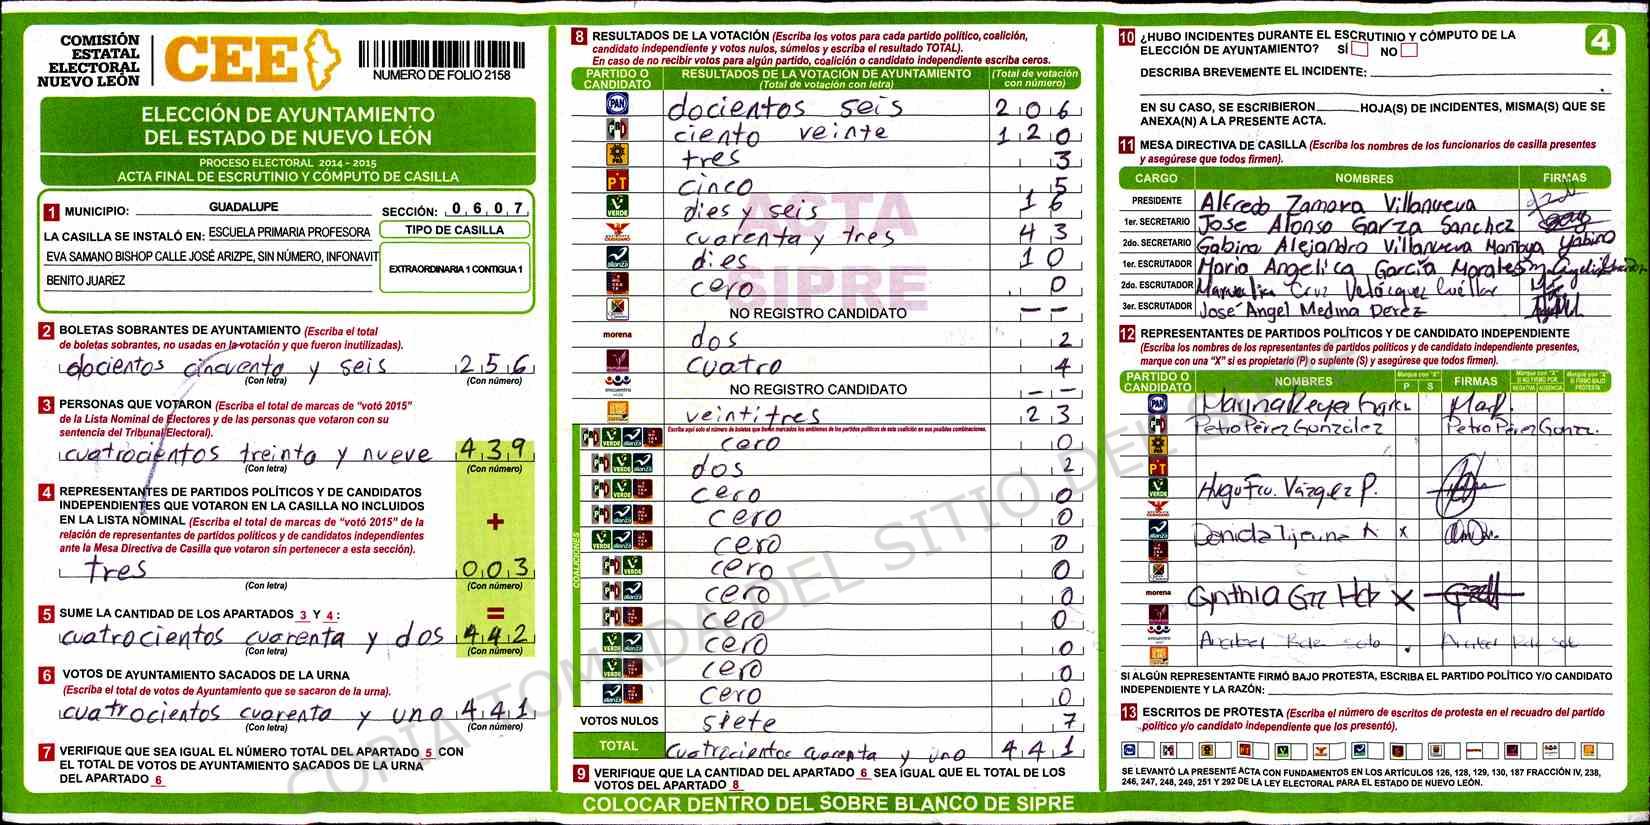 COMISIÓN
ESTATAL
ELECTORAL
NUEVO LEÓN
CEE
NUMERO DE FOLIO 2158
ELECCIÓN DE AYUNTAMIENTO
DEL ESTADO DE NUEVO LEÓN
PROCESO ELECTORAL 2014 - 2015
ACTA FINAL DE ESCRUTINIO Y CÓMPUTO DE CASILLA
1 MUNICIPIO: GUADALUPE SECCIÓN: 0 6 0 7
LA CASILLA SE INSTALÓ EN: ESCUELA PRIMARIA PROFESORA
EVA SAMANO BISHOP CALLE JOSÉ ARIZPE, SIN NÚMERO, INFONAVIT
BENITO JUAREZ
TIPO DE CASILLA
EXTRAORDINARIA 1 CONTIGUA 1
2 BOLETAS SOBRANTES DE AYUNTAMIENTO (Escriba el total
de boletas sobrantes, no usadas en la votación y que fueron inutilizadas).
docientos cincuenta y seis 2 5 6
(Con letra) (Con número)
3 PERSONAS QUE VOTARON (Escriba el total de marcas de "votó 2015"
de la Lista Nominal de Electores y de las personas que votaron con su
sentencia del Tribunal Electoral).
cuatrocientos treinta y nueve 4 3 9
(Con letra) (Con número)
4 REPRESENTANTES DE PARTIDOS POLÍTICOS Y DE CANDIDATOS
INDEPENDIENTES QUE VOTARON EN LA CASILLA NO INCLUIDOS
EN LA LISTA NOMINAL (Escriba el total de marcas de "votó 2015" de la
relación de representantes de partidos políticos y de candidatos independientes
ante la Mesa Directiva de Casilla que votaron sin pertenecer a esta sección).
+
tres 0 0 3
(Con letra) (Con número)
5 SUME LA CANTIDAD DE LOS APARTADOS 3 Y 4 : =
cuatrocientos cuarenta y dos 4 4 2
(Con letra) (Con número)
6 VOTOS DE AYUNTAMIENTO SACADOS DE LA URNA
(Escriba el total de votos de Ayuntamiento que se sacaron de la urna).
cuatrocientos cuarenta y uno 4 4 1
(Con letra) (Con número)
7 VERIFIQUE QUE SEA IGUAL EL NÚMERO TOTAL DEL APARTADO 5 CON
EL TOTAL DE VOTOS DE AYUNTAMIENTO SACADOS DE LA URNA
DEL APARTADO 6
8 RESULTADOS DE LA VOTACIÓN (Escriba los votos para cada partido político, coalición,
candidato independiente y votos nulos, súmelos y escriba el resultado TOTAL).
En caso de no recibir votos para algún partido, coalición o candidato independiente escriba ceros.
PARTIDO O CANDIDATO
RESULTADOS DE LA VOTACIÓN DE AYUNTAMIENTO
(Total de votación con letra)
(Total de votación con número)
PAN docientos seis 2 0 6
PRI ciento veinte 1 2 0
PRD tres 3
PT cinco 5
VERDE dies y seis 1 6
cuarenta y tres 4 3
alianza dies 1 0
cero 0
NO REGISTRO CANDIDATO – –
morena dos 2
cuatro 4
encuentro NO REGISTRO CANDIDATO – –
veintitres 2 3
COALICIONES
Escriba aquí solo el número de boletas que tienen marcados los emblemas de los partidos políticos de esta coalición en sus posibles combinaciones.
cero 0
dos 2
cero 0
cero 0
cero 0
cero 0
cero 0
cero 0
cero 0
cero 0
cero 0
VOTOS NULOS siete 7
TOTAL cuatrocientos cuarenta y uno 4 4 1
ACTA
SIPRE
9 VERIFIQUE QUE LA CANTIDAD DEL APARTADO 6 SEA IGUAL QUE EL TOTAL DE LOS
VOTOS DEL APARTADO 8
COLOCAR DENTRO DEL SOBRE BLANCO DE SIPRE
COPIA TOMADA DEL SITIO DEL SIPRE
10 ¿HUBO INCIDENTES DURANTE EL ESCRUTINIO Y CÓMPUTO DE LA
ELECCIÓN DE AYUNTAMIENTO? SÍ NO
4
DESCRIBA BREVEMENTE EL INCIDENTE:
EN SU CASO, SE ESCRIBIERON HOJA(S) DE INCIDENTES, MISMA(S) QUE SE
ANEXA(N) A LA PRESENTE ACTA.
11 MESA DIRECTIVA DE CASILLA (Escriba los nombres de los funcionarios de casilla presentes
y asegúrese que todos firmen).
CARGO NOMBRES FIRMAS
PRESIDENTE Alfredo Zamora Villanueva
1er. SECRETARIO Jose Alonso Garza Sanchez
2do. SECRETARIO Gabino Alejandro Villanueva Montoya Gabino
1er. ESCRUTADOR Maria Angelica García Morales
2do. ESCRUTADOR Cruz Velázquez Cuéllar
3er. ESCRUTADOR José Angel Medina Perez
12 REPRESENTANTES DE PARTIDOS POLÍTICOS Y DE CANDIDATO INDEPENDIENTE
(Escriba los nombres de los representantes de partidos políticos y de candidato independiente presentes,
marque con una "X" si es propietario (P) o suplente (S) y asegúrese que todos firmen).
PARTIDO O CANDIDATO NOMBRES Marque con "X" P S FIRMAS Marque con "X" SI NO FIRMÓ POR NEGATIVA AUSENCIA Marque con "X" SI FIRMÓ BAJO PROTESTA
PAN Marina Reyes Garcia
Petra Pérez González Petra Pérez Gonza.
PRD
PT
VERDE Hugo Fco. Vázquez P.
alianza Daniela Tijerina x
morena Cynthia Gzz Hdz X
SI ALGÚN REPRESENTANTE FIRMÓ BAJO PROTESTA, ESCRIBA EL PARTIDO POLÍTICO Y/O CANDIDATO
INDEPENDIENTE Y LA RAZÓN:
13 ESCRITOS DE PROTESTA (Escriba el número de escritos de protesta en el recuadro del partido
político y/o candidato independiente que los presentó).
SE LEVANTÓ LA PRESENTE ACTA CON FUNDAMENTOS EN LOS ARTÍCULOS 126, 128, 129, 130, 187 FRACCIÓN IV, 238,
246, 247, 248, 249, 251 Y 292 DE LA LEY ELECTORAL PARA EL ESTADO DE NUEVO LEÓN.